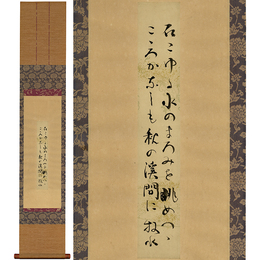 石にゆる水のまろみを眺めつゝ
こゝろかなしも秋の渓間に 牧水